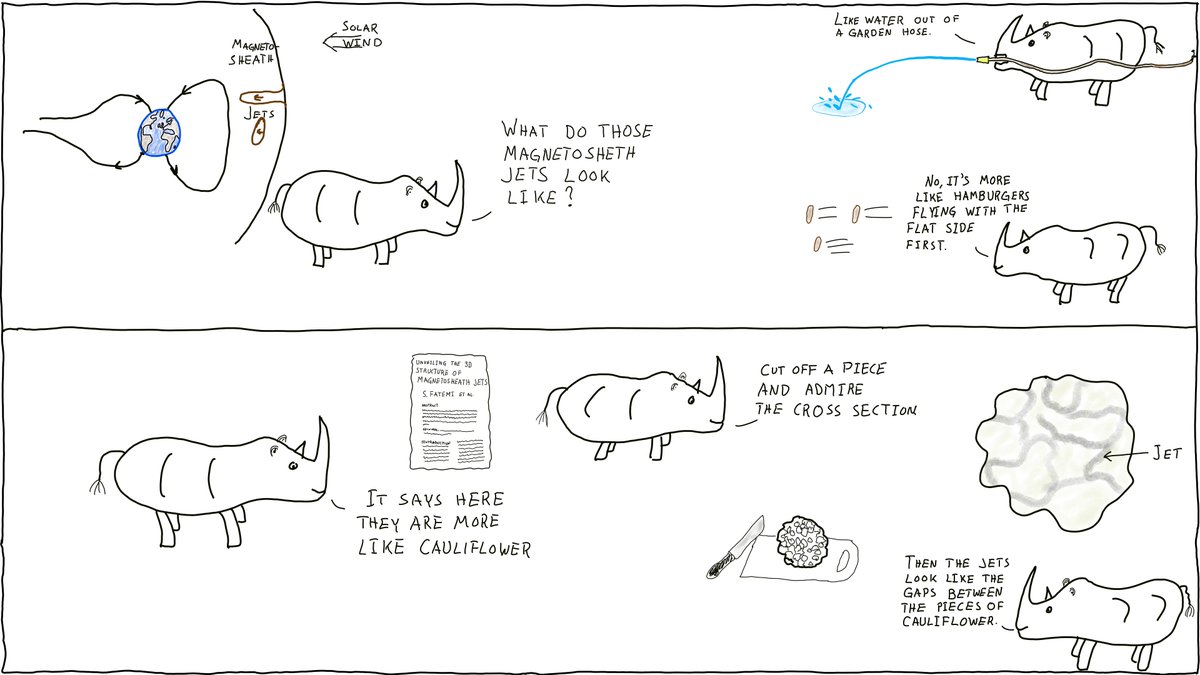 SOLAR
WIND
MAGNETO-
SHEATH
JETS
WHAT DO THOSE
MAGNETOSHETH
JETS LOOK
LIKE?
LIKE WATER OUT OF
A GARDEN HOSE.
NO, IT'S MORE
LIKE HAMBURGERS
FLYING WITH THE
FLAT SIDE
FIRST.
UNVEILING THE 3D
STRUCTURE OF
MAGNETOSHEATH JETS
S. FATEMI ET AL
ABSTRACT
INTRODUCTION
IT SAYS HERE
THEY ARE MORE
LIKE CAULIFLOWER
CUT OFF A PIECE
AND ADMIRE
THE CROSS SECTION
JET
THEN THE JETS
LOOK LIKE THE
GAPS BETWEEN
THE PIECES OF
CAULIFLOWER.